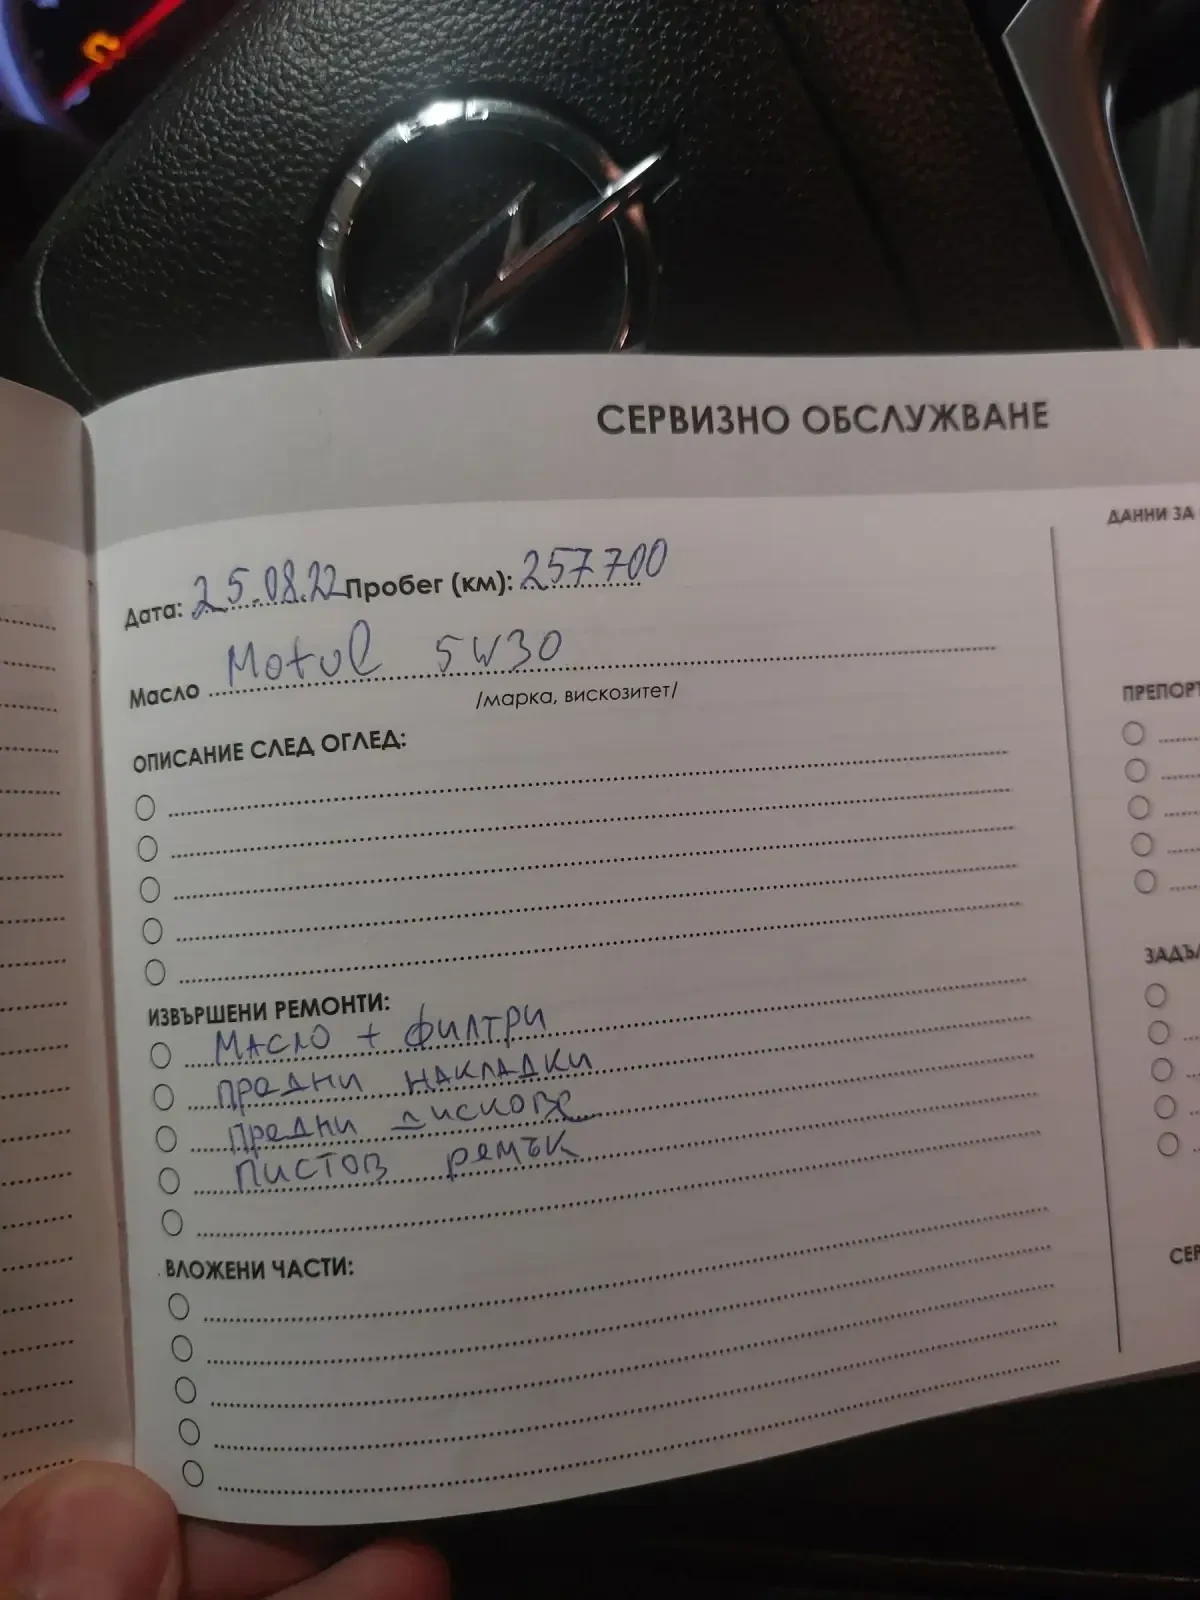 СЕРВИЗНО ОБСЛУЖВАНЕ
Дата: 25.08.22 Пробег (км): 257700
Масло Motul 5W30
/марка, вискозитет/
ОПИСАНИЕ СЛЕД ОГЛЕД:
ИЗВЪРШЕНИ РЕМОНТИ:
Масло + филтри
предни накладки
предни дискове
пистов ремък
ВЛОЖЕНИ ЧАСТИ:
ДАННИ ЗА
ПРЕПОР
ЗАДЪЛ
СЕР